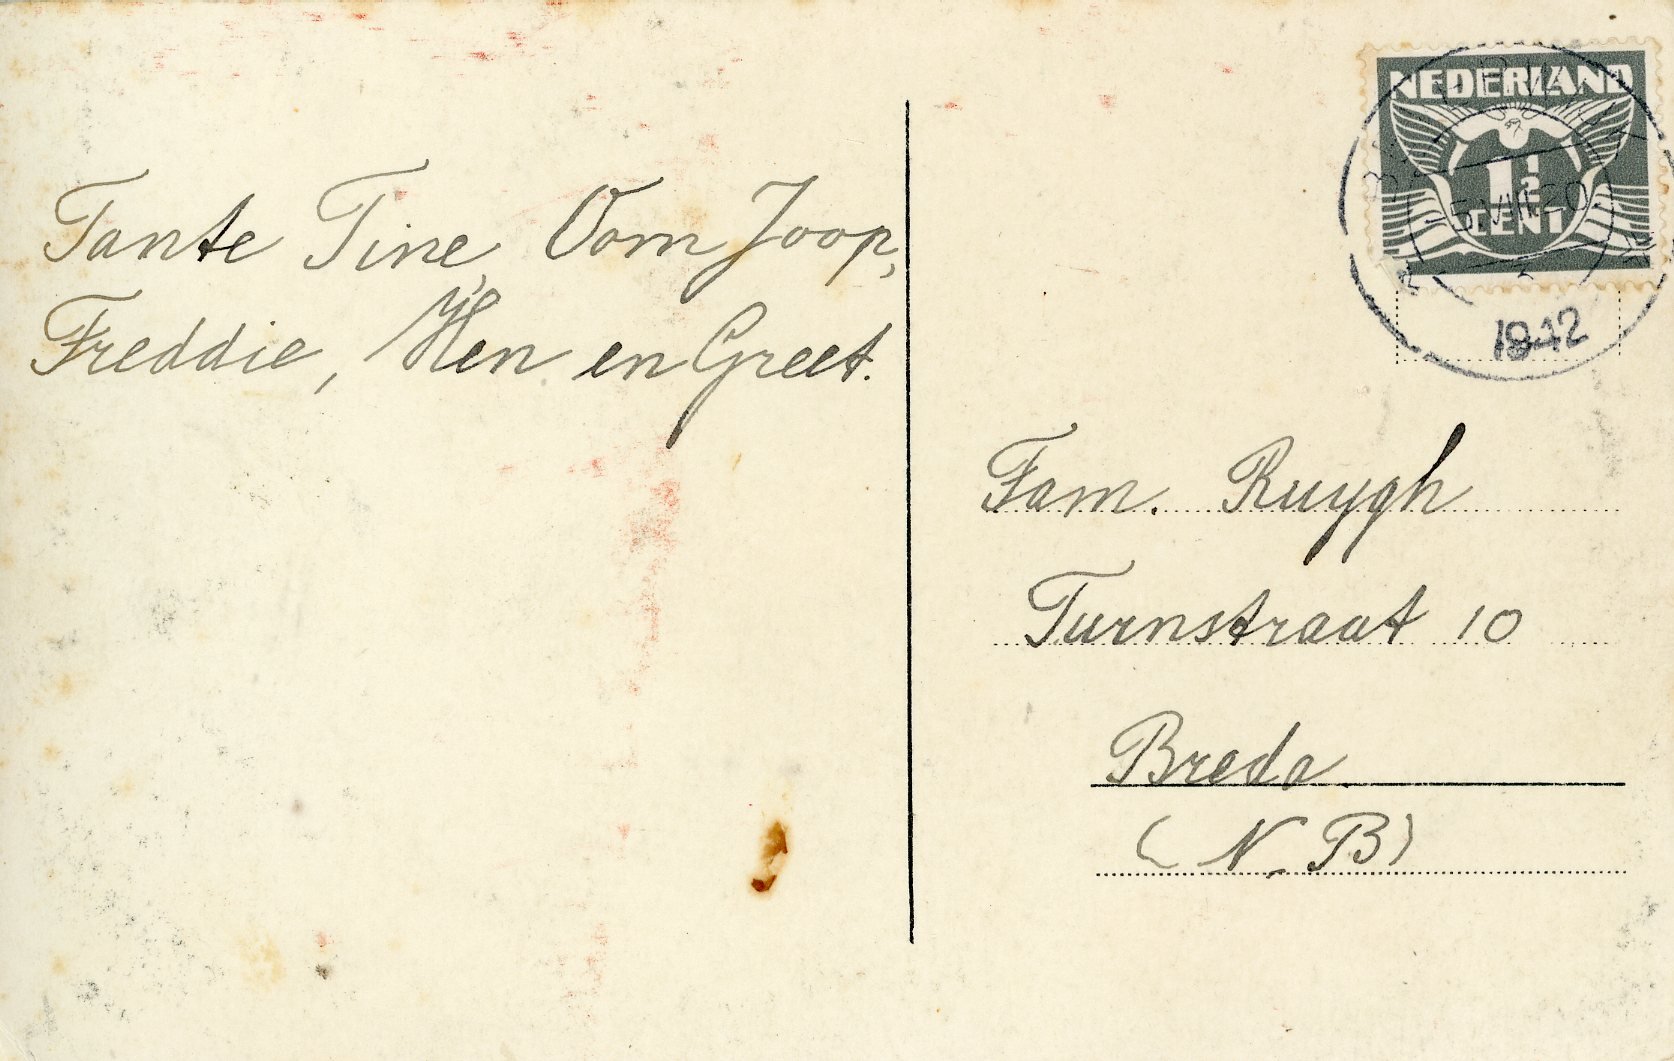 Tante Tine, Oom Joop,
Freddie, Hen en Greet.
NEDERLAND
1½
CENT
1942
Fam. Ruygh
Turnstraat 10
Breda
(N.B)